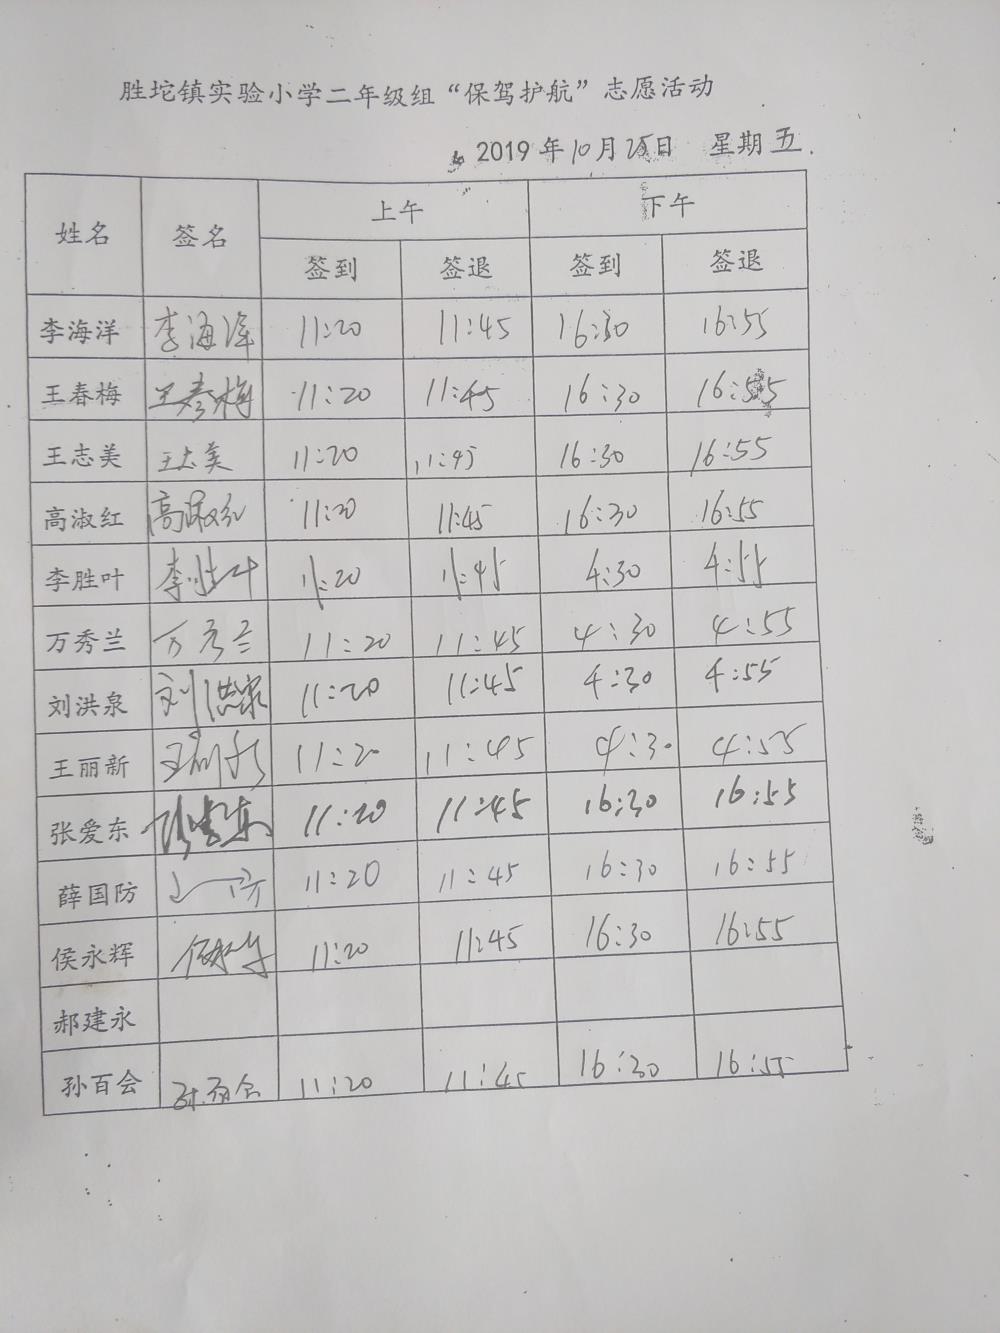 胜坨镇实验小学二年级组“保驾护航”志愿活动
2019年10月25日 星期五.
姓名 签名 上午 下午
签到 签退 签到 签退
李海洋 李海洋 11:20 11:45 16:30 16:55
王春梅 王春梅 11:20 11:45 16:30 16:55
王志美 王志美 11:20 11:45 16:30 16:55
高淑红 高淑红 11:20 11:45 16:30 16:55
李胜叶 李胜叶 11:20 11:45 4:30 4:55
万秀兰 万秀兰 11:20 11:45 4:30 4:55
刘洪泉 刘洪泉 11:20 11:45 4:30 4:55
王丽新 王丽新 11:20 11:45 4:30 4:55
张爱东 张爱东 11:20 11:45 16:30 16:55
薛国防 11:20 11:45 16:30 16:55
侯永辉 11:20 11:45 16:30 16:55
郝建永
孙百会 孙百会 11:20 11:45 16:30 16:55